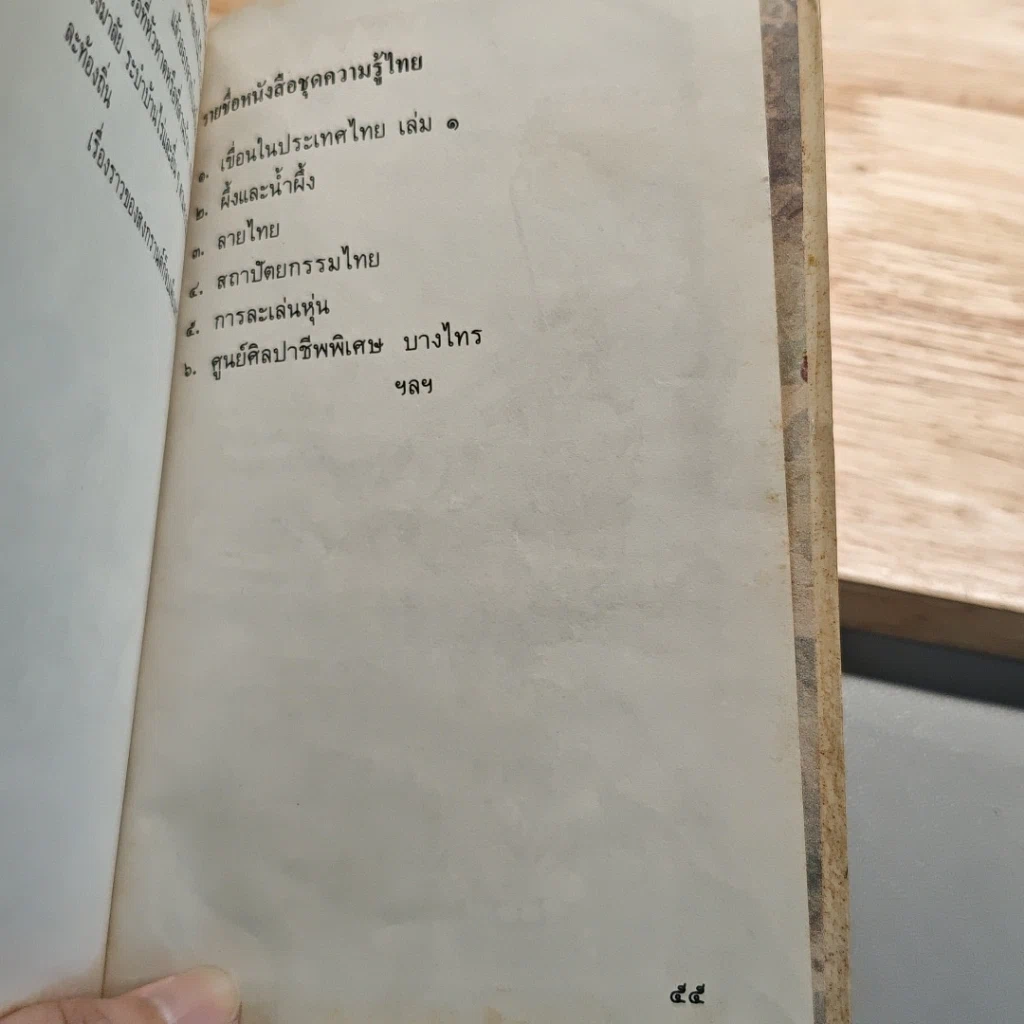 ละท้องถิ่น
รายชื่อหนังสือชุดความรู้ไทย
๑. เขื่อนในประเทศไทย เล่ม ๑
๒. ผึ้งและน้ำผึ้ง
๓. ลายไทย
๔. สถาปัตยกรรมไทย
๕. การละเล่นหุ่น
๖. ศูนย์ศิลปาชีพพิเศษ บางไทร
ฯลฯ
๕๕